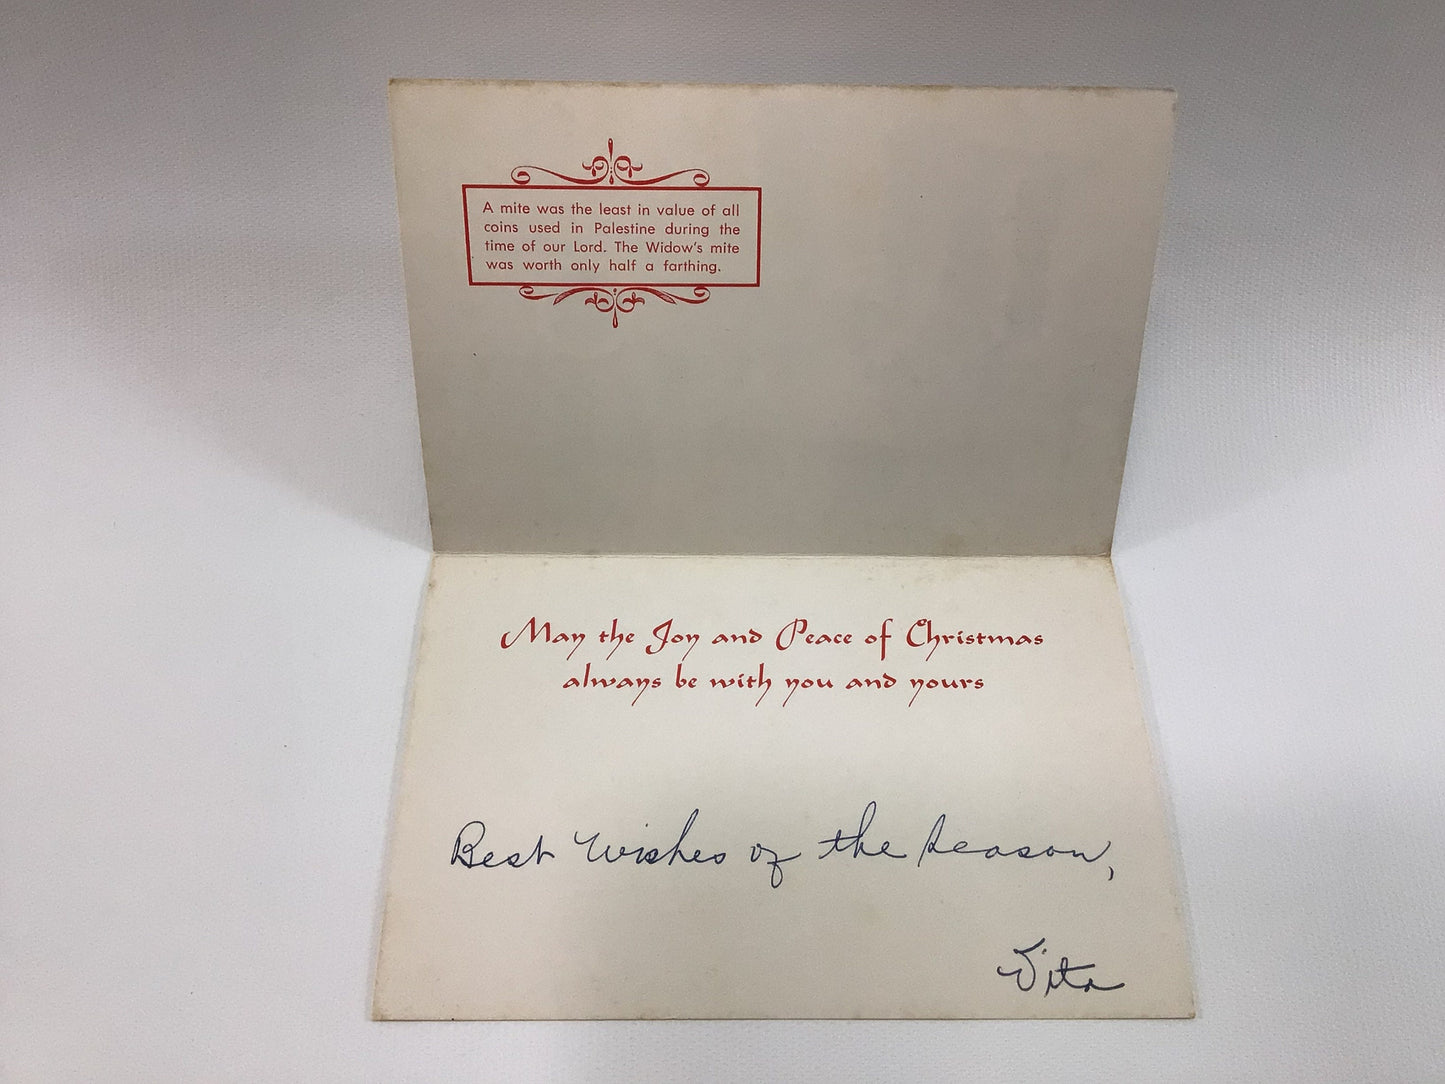 A mite was the least in value of all
coins used in Palestine during the
time of our Lord. The Widow's mite
was worth only half a farthing.
May the Joy and Peace of Christmas
always be with you and yours
Best Wishes of the Season,
Vita